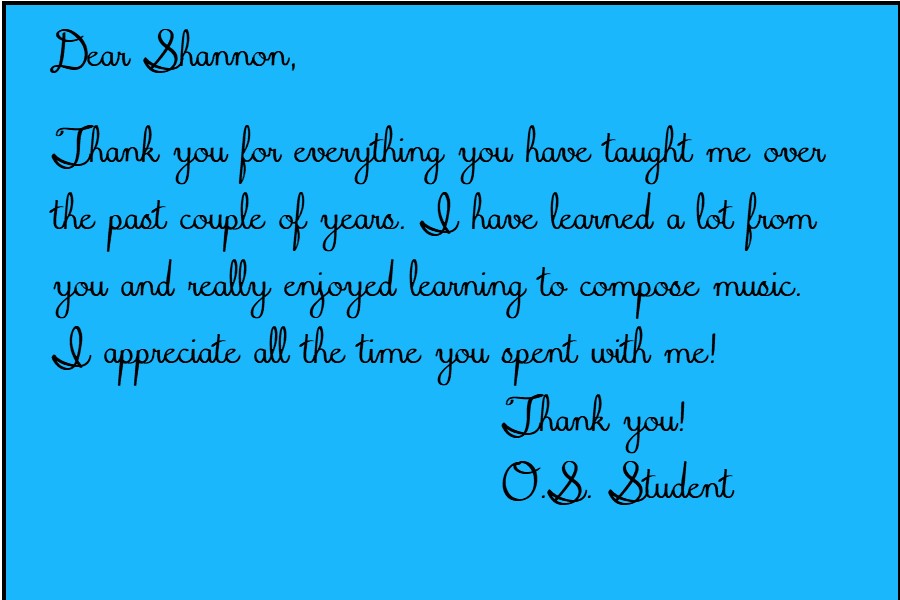 Dear Shannon,
Thank you for everything you have taught me over
the past couple of years. I have learned a lot from
you and really enjoyed learning to compose music.
I appreciate all the time you spent with me!
Thank you!
O.S. Student